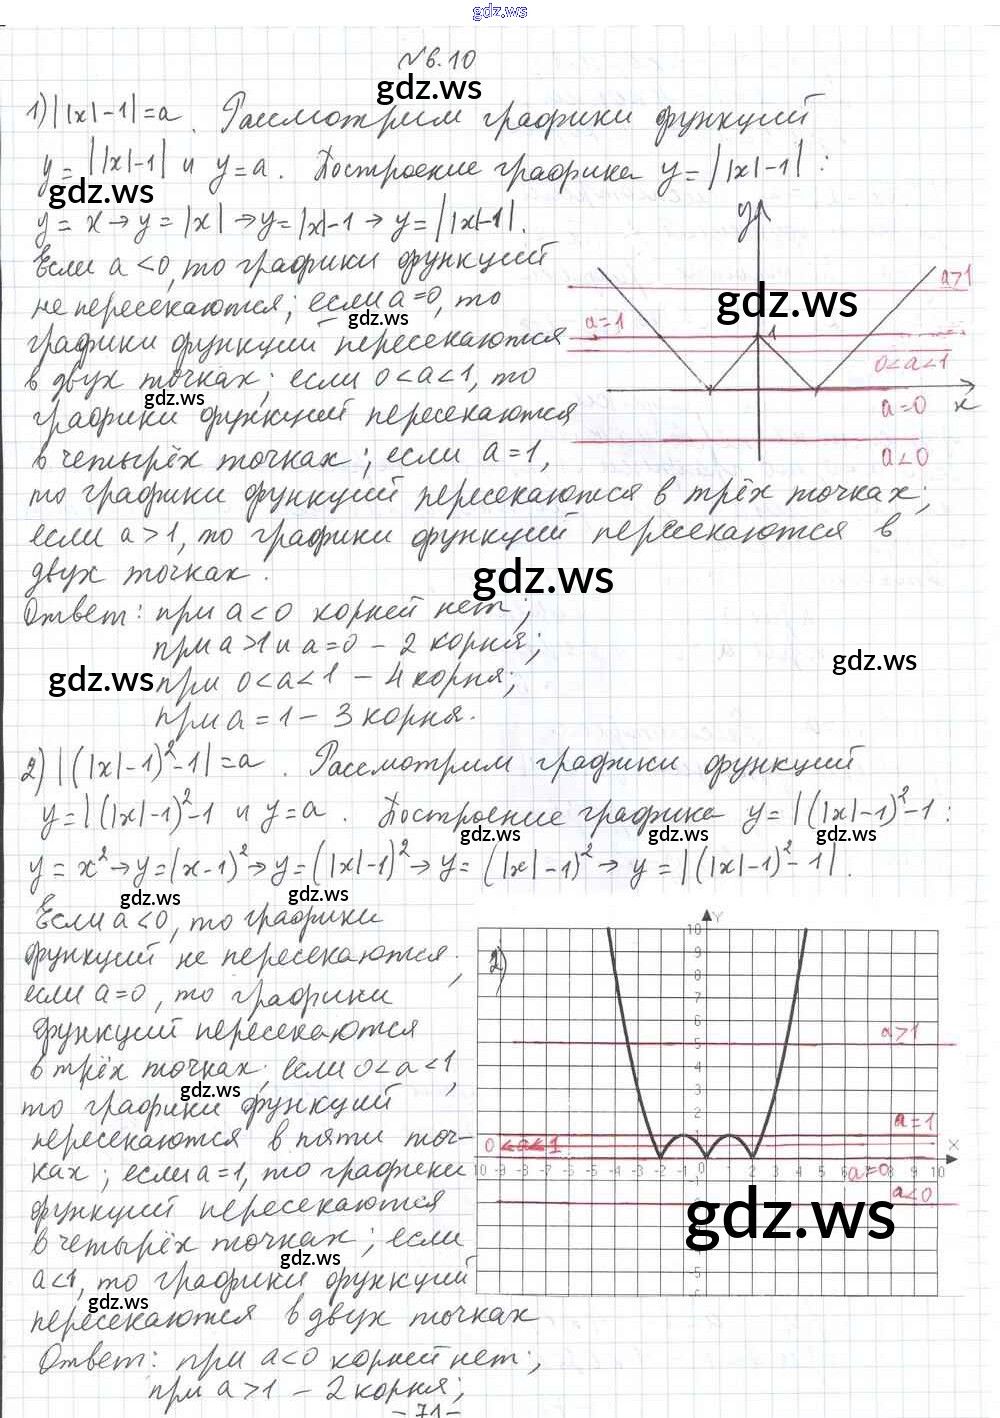 gdz.ws
№6.10
gdz.ws
1) ||x|-1|=a. Рассмотрим графики функций
y=||x|-1| и y=a. Построение графика y=||x|-1|:
gdz.ws
y=x→y=|x|→y=|x|-1→y=||x|-1|.
Если a<0, то графики функций
не пересекаются; если a=0, то
gdz.ws
графики функций пересекаются
в двух точках; если 0<a<1, то
gdz.ws
графики функций пересекаются
в четырёх точках; если a=1,
y
a>1
gdz.ws
a=1
1
0<a<1
a=0
x
a<0
то графики функций пересекаются в трёх точках;
если a>1, то графики функций пересекаются в
двух точках.
gdz.ws
Ответ: при a<0 корней нет;
при a>1 и a=0 - 2 корня;
gdz.ws
gdz.ws
при 0<a<1 - 4 корня;
при a=1 - 3 корня.
2) |(|x|-1)²-1|=a. Рассмотрим графики функций
y=|(|x|-1)²-1 и y=a. Построение графика y=|(|x|-1)²-1:
gdz.ws gdz.ws gdz.ws
y=x²→y=(x-1)²→y=(|x|-1)²→y=(|x|-1)²→y=|(|x|-1)²-1|.
gdz.ws gdz.ws
Если a<0, то графики
функций не пересекаются;
если a=0, то графики
функций пересекаются
в трёх точках; если 0<a<1,
gdz.ws
то графики функций
пересекаются в пяти точ-
ках; если a=1, то графики
функций пересекаются
в четырёх точках; если
gdz.ws
a<1, то графики функций
gdz.ws
пересекаются в двух точках
2)
Y
10
9
8
7
6
5
4
3
2
1
a>1
a=1
0<a<1
X
10 -9 -8 -7 -6 -5 -4 -3 -2 -1 0 1 2 3 4 5 6 7 8 9 10
a=0
a<0
gdz.ws
-5
Ответ: при a<0 корней нет;
при a>1 - 2 корня;
-71-